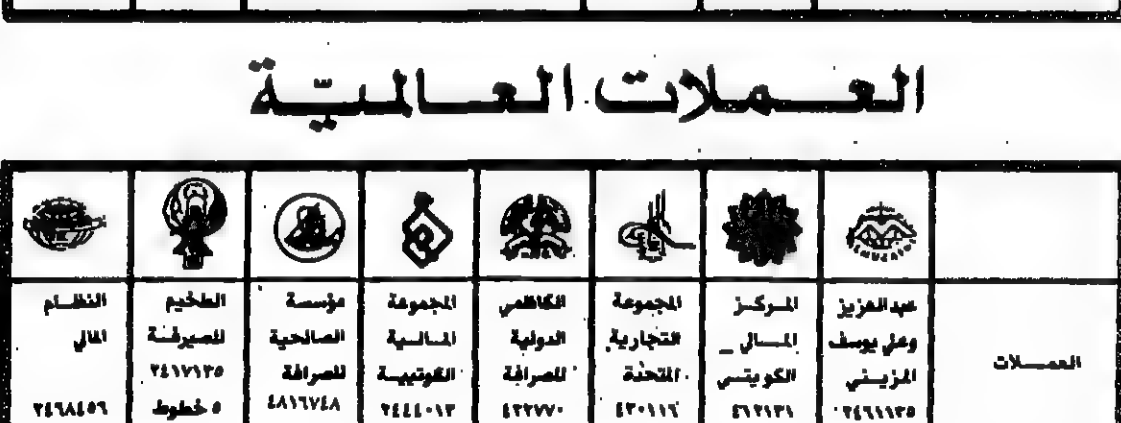 العملات العالميّة
العملات
عبدالعزيز
وعلي يوسف
المزيني
٢٤٦١١٢٥
المركز
المالي _
الكويتي
٤٦٢١٣١
المجموعة
التجارية
المتحدة
٤٣٠١١٦
الكاظمي
الدولية
للصرافة
٤٢٢٧٧٠
المجموعة
المالية
الكويتية
٢٤٤٤٠١٣
مؤسسة
الصالحية
للصرافة
٤٨١٦٧٤٨
الطخيم
للصيرفة
٢٤١٧١٣٥
٥ خطوط
النظام
المالي
٢٤٦٨٤٥٦